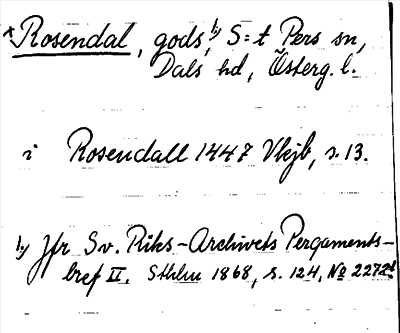 *Rosendal, gods, 1) S:t Pers sn,
Dals hd, Österg. l.
i Rosendall 1447 Vkjb, s. 13.
1) Jfr Sv. Riks-Archivets Pergaments-
bref II. Sthlm 1868, s. 124, No 2272